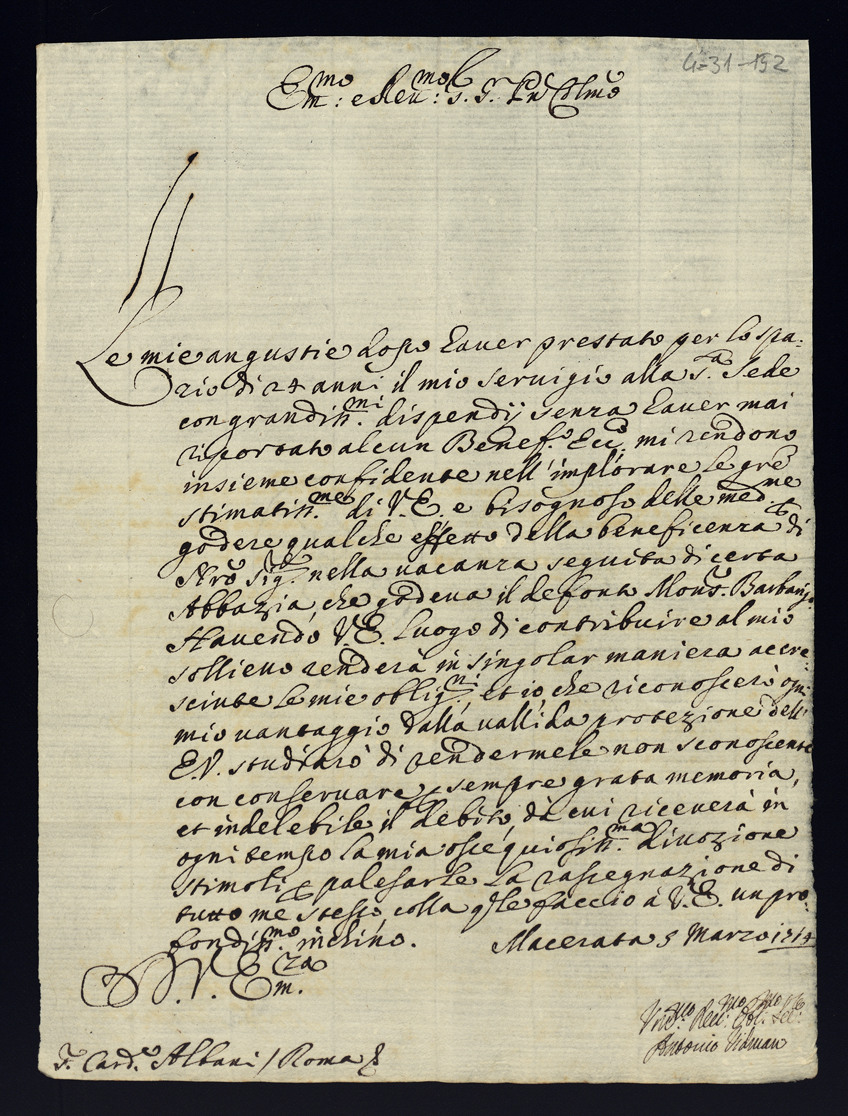 4=31-192
Em:mo e Reu:mo S.r P.rn Colmo
Le mie angustie dopo hauer prestato per lo spa:
zio di 24 anni il mio seruigio alla S.ta Sede
con grandiss.mi dispendij senza hauer mai
riportato alcun Benef.o Ecc.o mi rendono
insieme confidente nell'implorare le gr̃e
stimatiss.me di V.E. e bisognoso delle med.me
godere qualche effetto della beneficenza di
Nr̃o Sig.re nella uacanza seguita di certa
Abbazia, che godeua il defonto Mons.r Barbarigo.
Hauendo V.E. luogo di contribuire al mio
sollieuo renderà in singolar maniera accre:
sciute le mie oblig.ni, et io che riconoscerò ogni
mio uantaggio dalla uallida protezione dell'
E.V. studiarò di rendermele non sconoscente
con conseruare sempre grata memoria,
et indelebile il debito, da cui riceuerà in
ogni tempo la mia ossequiosiss.ma diuozione
stimoli p palesarle la rassegnazione di
tutto me stesso, colla q̃le faccio à V.E. un pro:
fondiss.mo inchino. Macerata 5 Marzo 1714
D. V. Em.za
S.r Card.e Albani / Roma
Um.mo Reu.mo Obl.mo Ser.
Antonio Vidman